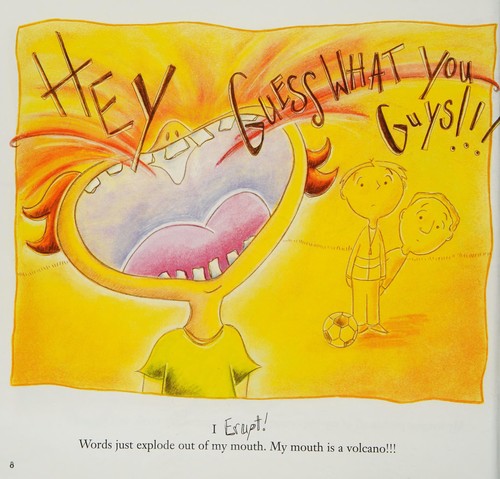 HEY GUESS WHAT YOU
GUYS!!!...
I Erupt!
Words just explode out of my mouth. My mouth is a volcano!!!
8